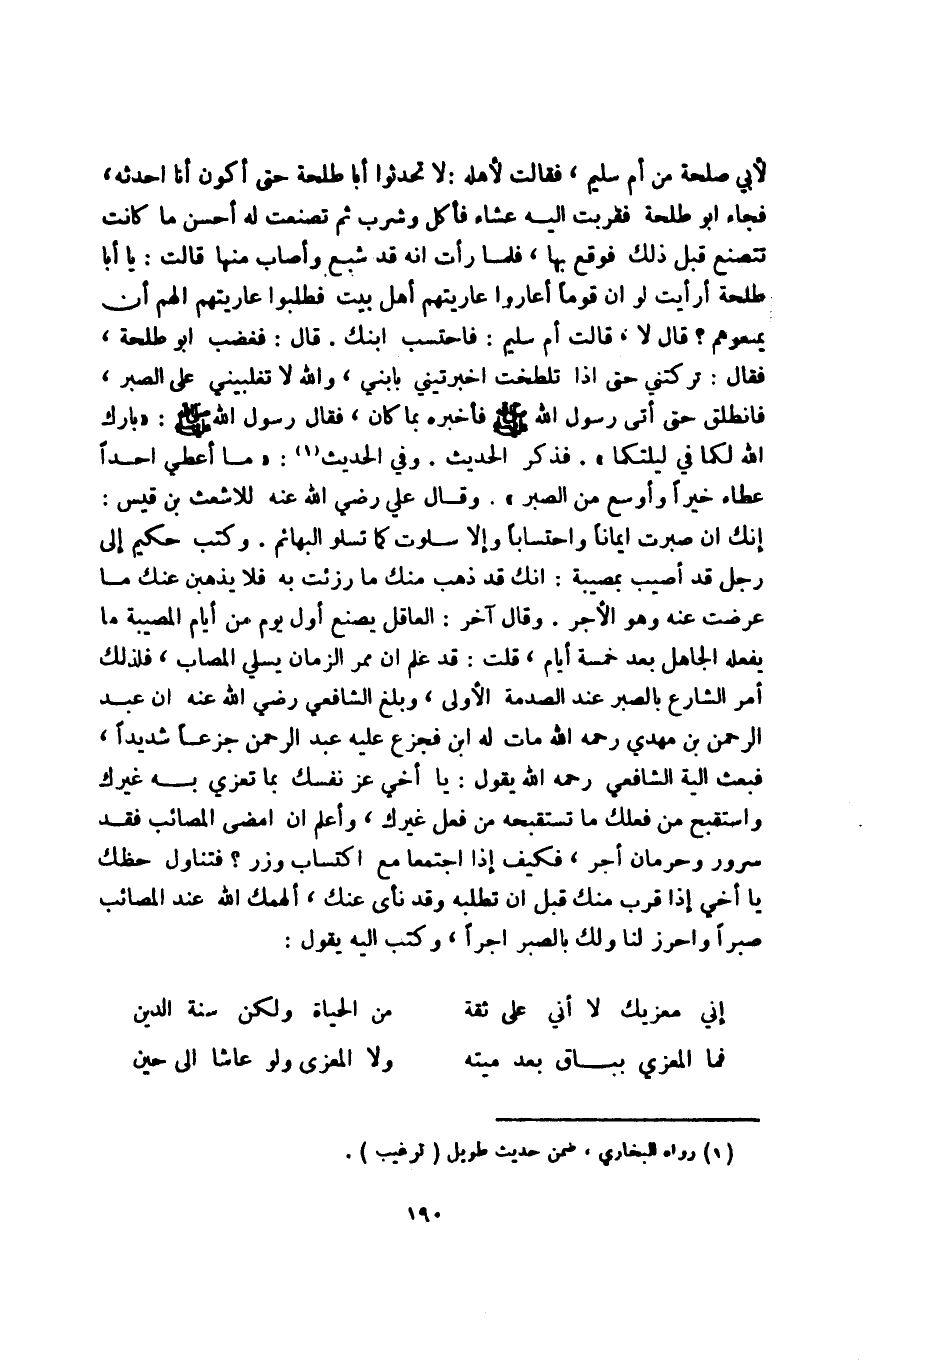 لأبي صلحة من أم سليم ، فقالت لأهله : لا تحدثوا أبا طلحة حتى أكون أنا احدثه ،
فجاء ابو طلحة فقربت اليه عشاء فأكل وشرب ثم تصنعت له أحسن ما كانت
تتصنع قبل ذلك فوقع بها ، فلما رأت انه قد شبع وأصاب منها قالت : يا أبا
طلحة أرأيت لو ان قوماً أعاروا عاريتهم أهل بيت فطلبوا عاريتهم الهم أن
يمنعوهم ؟ قال لا ، قالت أم سليم : فاحتسب ابنك . قال : فغضب ابو طلحة ،
فقال : تركتني حتى اذا تلطخت اخبرتيني بابني ، والله لا تغلبيني على الصبر ،
فانطلق حتى أتى رسول الله ﷺ فأخبره بما كان ، فقال رسول الله ﷺ : «بارك
الله لكما في ليلتكما » . فذكر الحديث . وفي الحديث(١) : « ما أعطي احداً
عطاء خيراً وأوسع من الصبر » . وقال علي رضي الله عنه للاشعث بن قيس :
إنك ان صبرت ايماناً واحتساباً وإلا سلوت كما تسلو البهائم . وكتب حكيم إلى
رجل قد أصيب بمصيبة : انك قد ذهب منك ما رزئت به فلا يذهبن عنك ما
عرضت عنه وهو الأجر . وقال آخر : العاقل يصنع أول يوم من أيام المصيبة ما
يفعله الجاهل بعد خمسة أيام ، قلت : قد علم ان ممر الزمان يسلي المصاب ، فلذلك
أمر الشارع بالصبر عند الصدمة الأولى ، وبلغ الشافعي رضي الله عنه ان عبد
الرحمن بن مهدي رحمه الله مات له ابن فجزع عليه عبد الرحمن جزعاً شديداً ،
فبعث الية الشافعي رحمه الله يقول : يا أخي عز نفسك بما تعزي به غيرك
واستقبح من فعلك ما تستقبحه من فعل غيرك ، وأعلم ان امضى المصائب فقد
سرور وحرمان أجر ، فكيف إذا اجتمعا مع اكتساب وزر ؟ فتناول حظك
يا أخي إذا قرب منك قبل ان تطلبه وقد نأى عنك ، ألهمك الله عند المصائب
صبراً واحرز لنا ولك بالصبر اجراً ، وكتب اليه يقول :
إني معزيك لا أني على ثقة من الحياة ولكن سنة الدين
فما المعزي بباق بعد ميته ولا المعزى ولو عاشا الى حين
(١) رواه البخاري ، ضمن حديث طويل ( ترغيب ) .
١٩٠